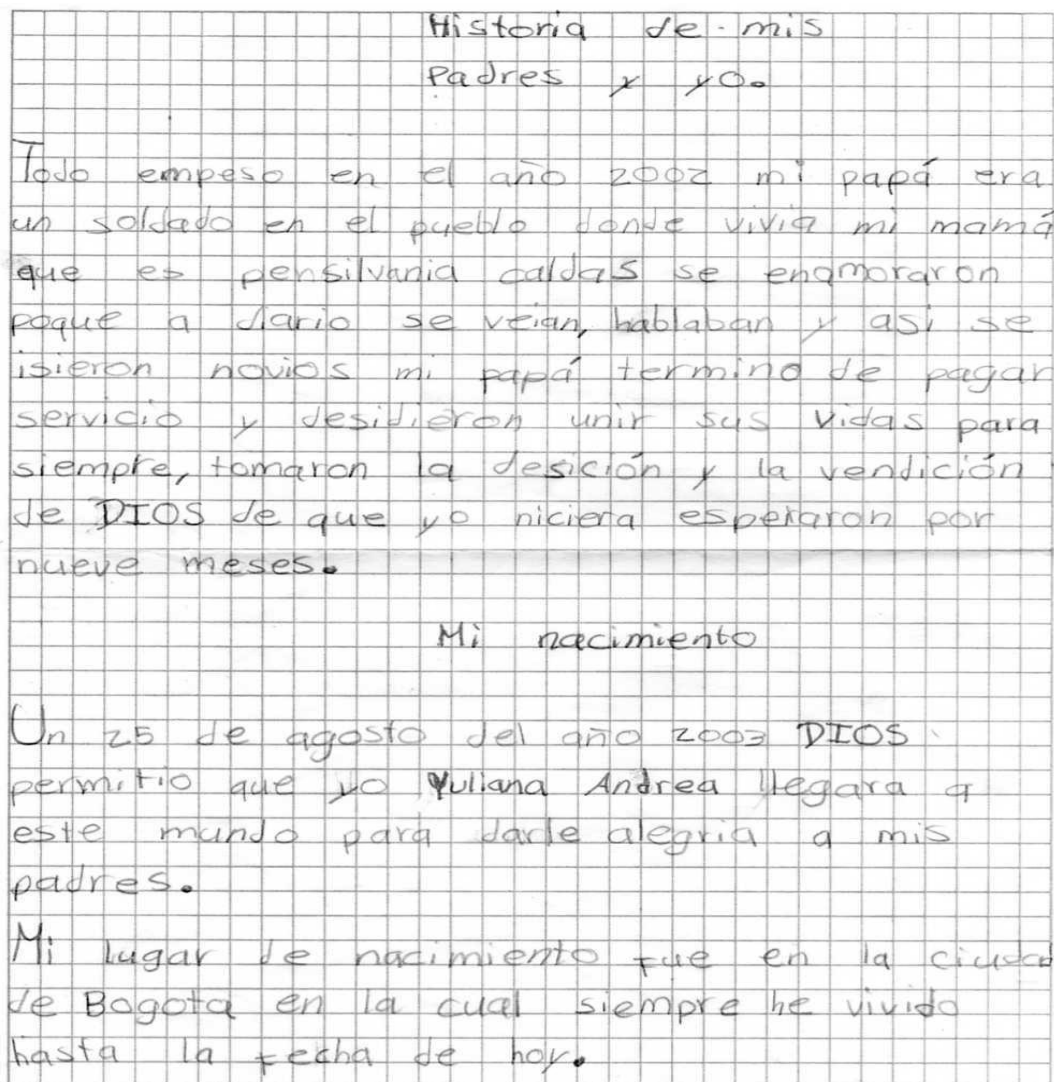 Historia de mis
Padres y yo.
Todo empeso en el año 2002 mi papá era
un soldado en el pueblo donde vivia mi mamá
que es pensilvania caldas se enamoraron
poque a diario se veian, hablaban y asi se
isieron novios mi papá termino de pagar
servicio y desidieron unir sus vidas para
siempre, tomaron la desición y la vendición
de DIOS de que yo niciera esperaron por
nueve meses.
Mi nacimiento
Un 25 de agosto del año 2003 DIOS
permitio que yo Yuliana Andrea llegara a
este mundo para darle alegria a mis
padres.
Mi lugar de nacimiento fue en la ciudad
de Bogota en la cual siempre he vivido
hasta la fecha de hoy.